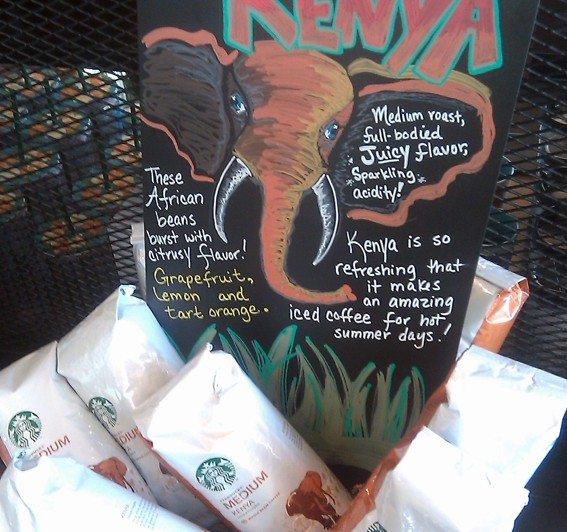 KENYA
Medium roast,
full-bodied
Juicy flavor,
*Sparkling*
acidity!
These
African
beans
burst with
citrusy flavor!
Grapefruit,
lemon and
tart orange.
Kenya is so
refreshing that
it makes
an amazing
iced coffee for hot
summer days!
MEDIUM
MEDIUM
KENYA